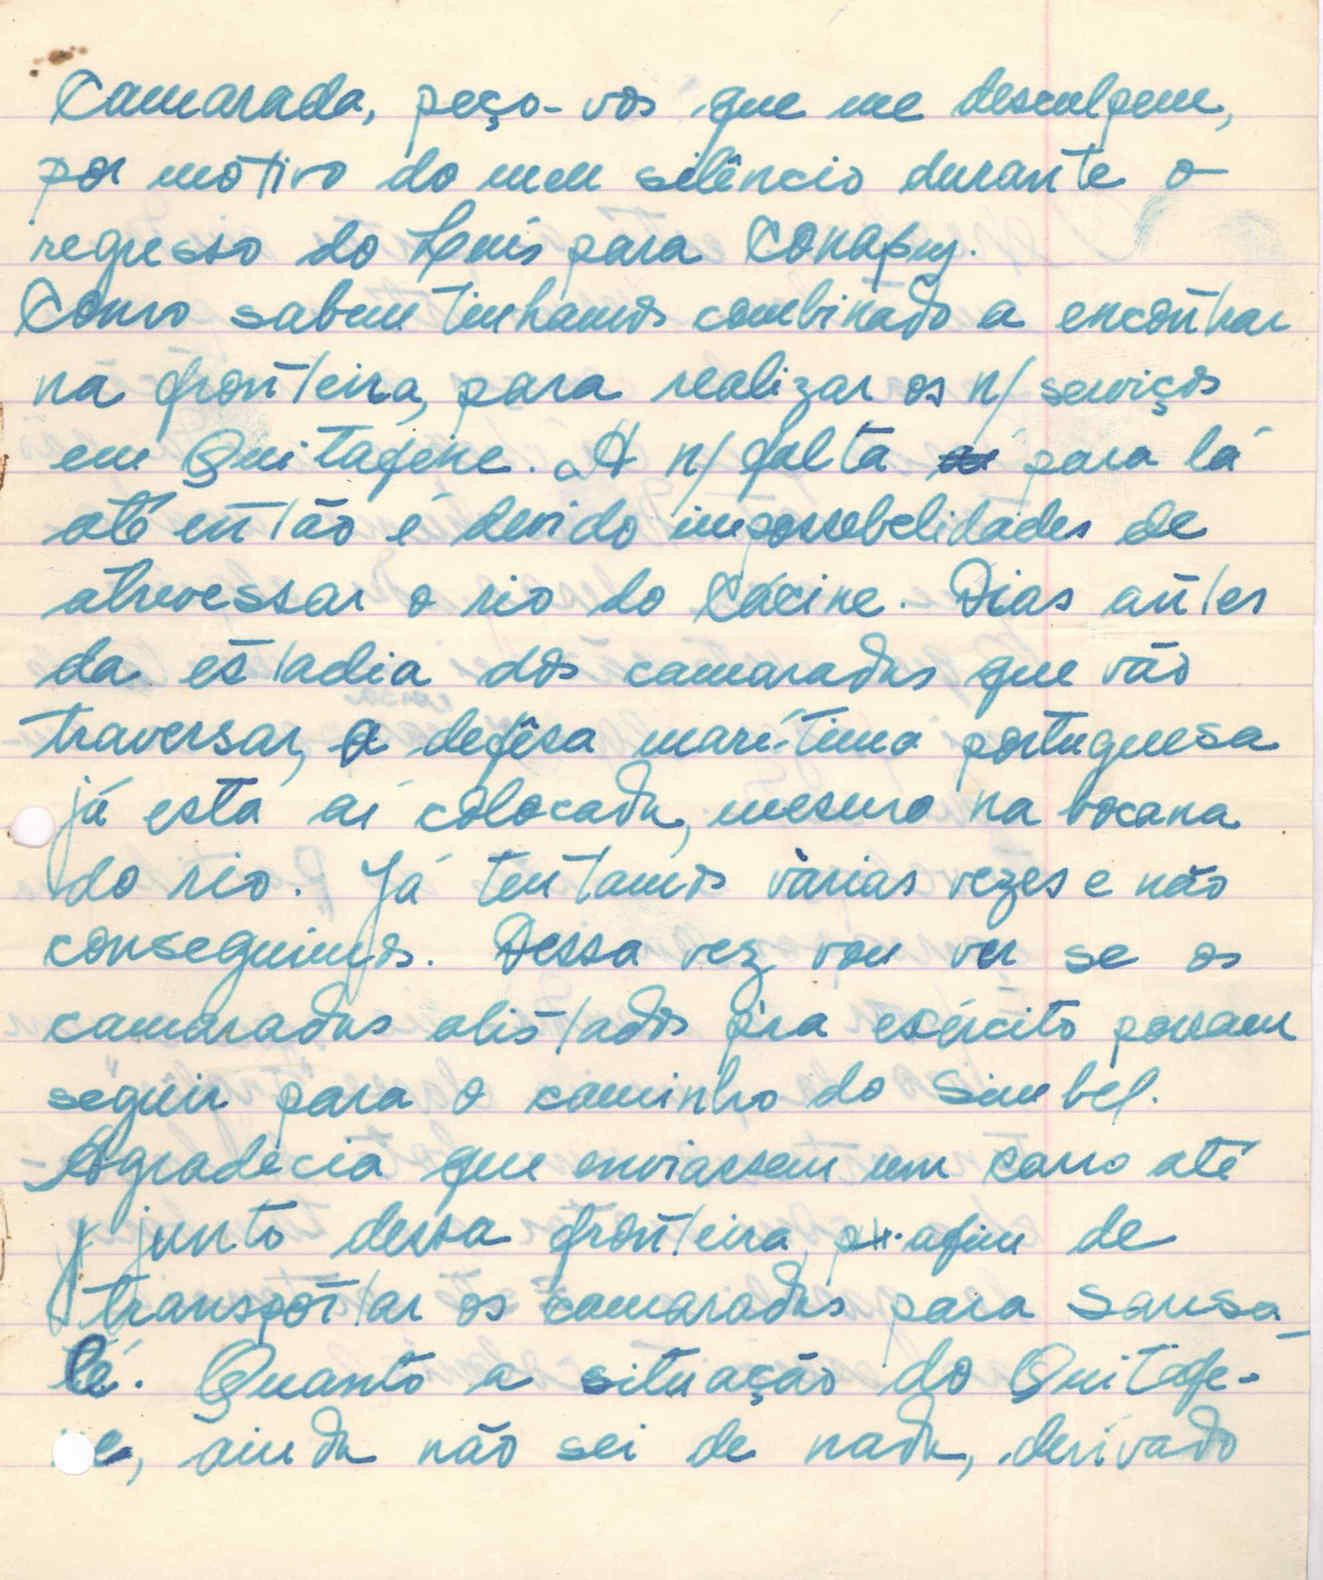 Camarada, peço-vos que me desculpem,
por motivo do meu silêncio durante o
regresso do Luís para Conakry.
Como sabem tinhamos combinado a encontrar
na fronteira, para realizar os n/ serviços
em Quitafine. A n/ falta para lá
até então é devido impossebelidades de
atrevessar o rio do Cácine. Dias antes
da estadia dos camaradas que vão
traversar, a defêsa marítima portuguesa
já está aí colocada, mesmo na bocana
do rio. Já tentamos várias vezes e não
conseguimos. Dessa vez vou ver se os
camaradas alistados p'ra exército possam
seguir para o caminho do Simbel.
Agradecia que enviassem um carro até
junto dessa fronteira, afim de
transportar os camaradas para Sansa-
lá. Quanto a situação do Quitafi-
ne, ainda não sei de nada, derivado